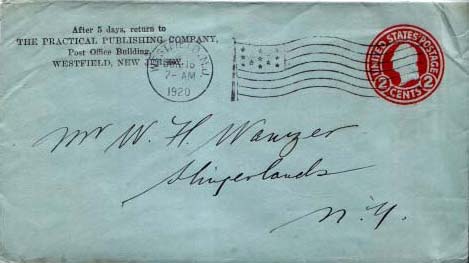 After 5 days, return to
THE PRACTICAL PUBLISHING COMPANY,
Post Office Building,
WESTFIELD, NEW JERSEY.
WESTFIELD, N.J.
7-AM
1920
UNITED STATES POSTAGE
2 CENTS 2
Mr W. H. Wanzer
Slingerlands
N.Y.